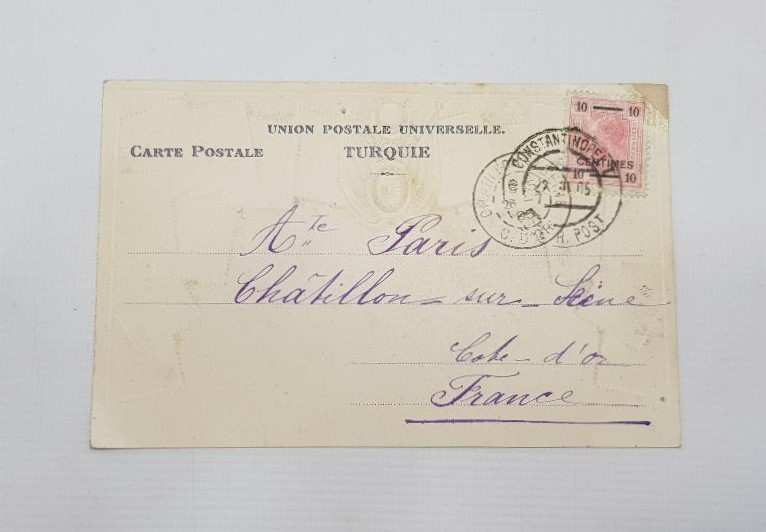 UNION POSTALE UNIVERSELLE.
CARTE POSTALE TURQUIE
10 10
CENTIMES
10 10
CONSTANTINOPEL
H. POST
Ate Paris
Châtillon-sur-Seine
Cote-d'or
France